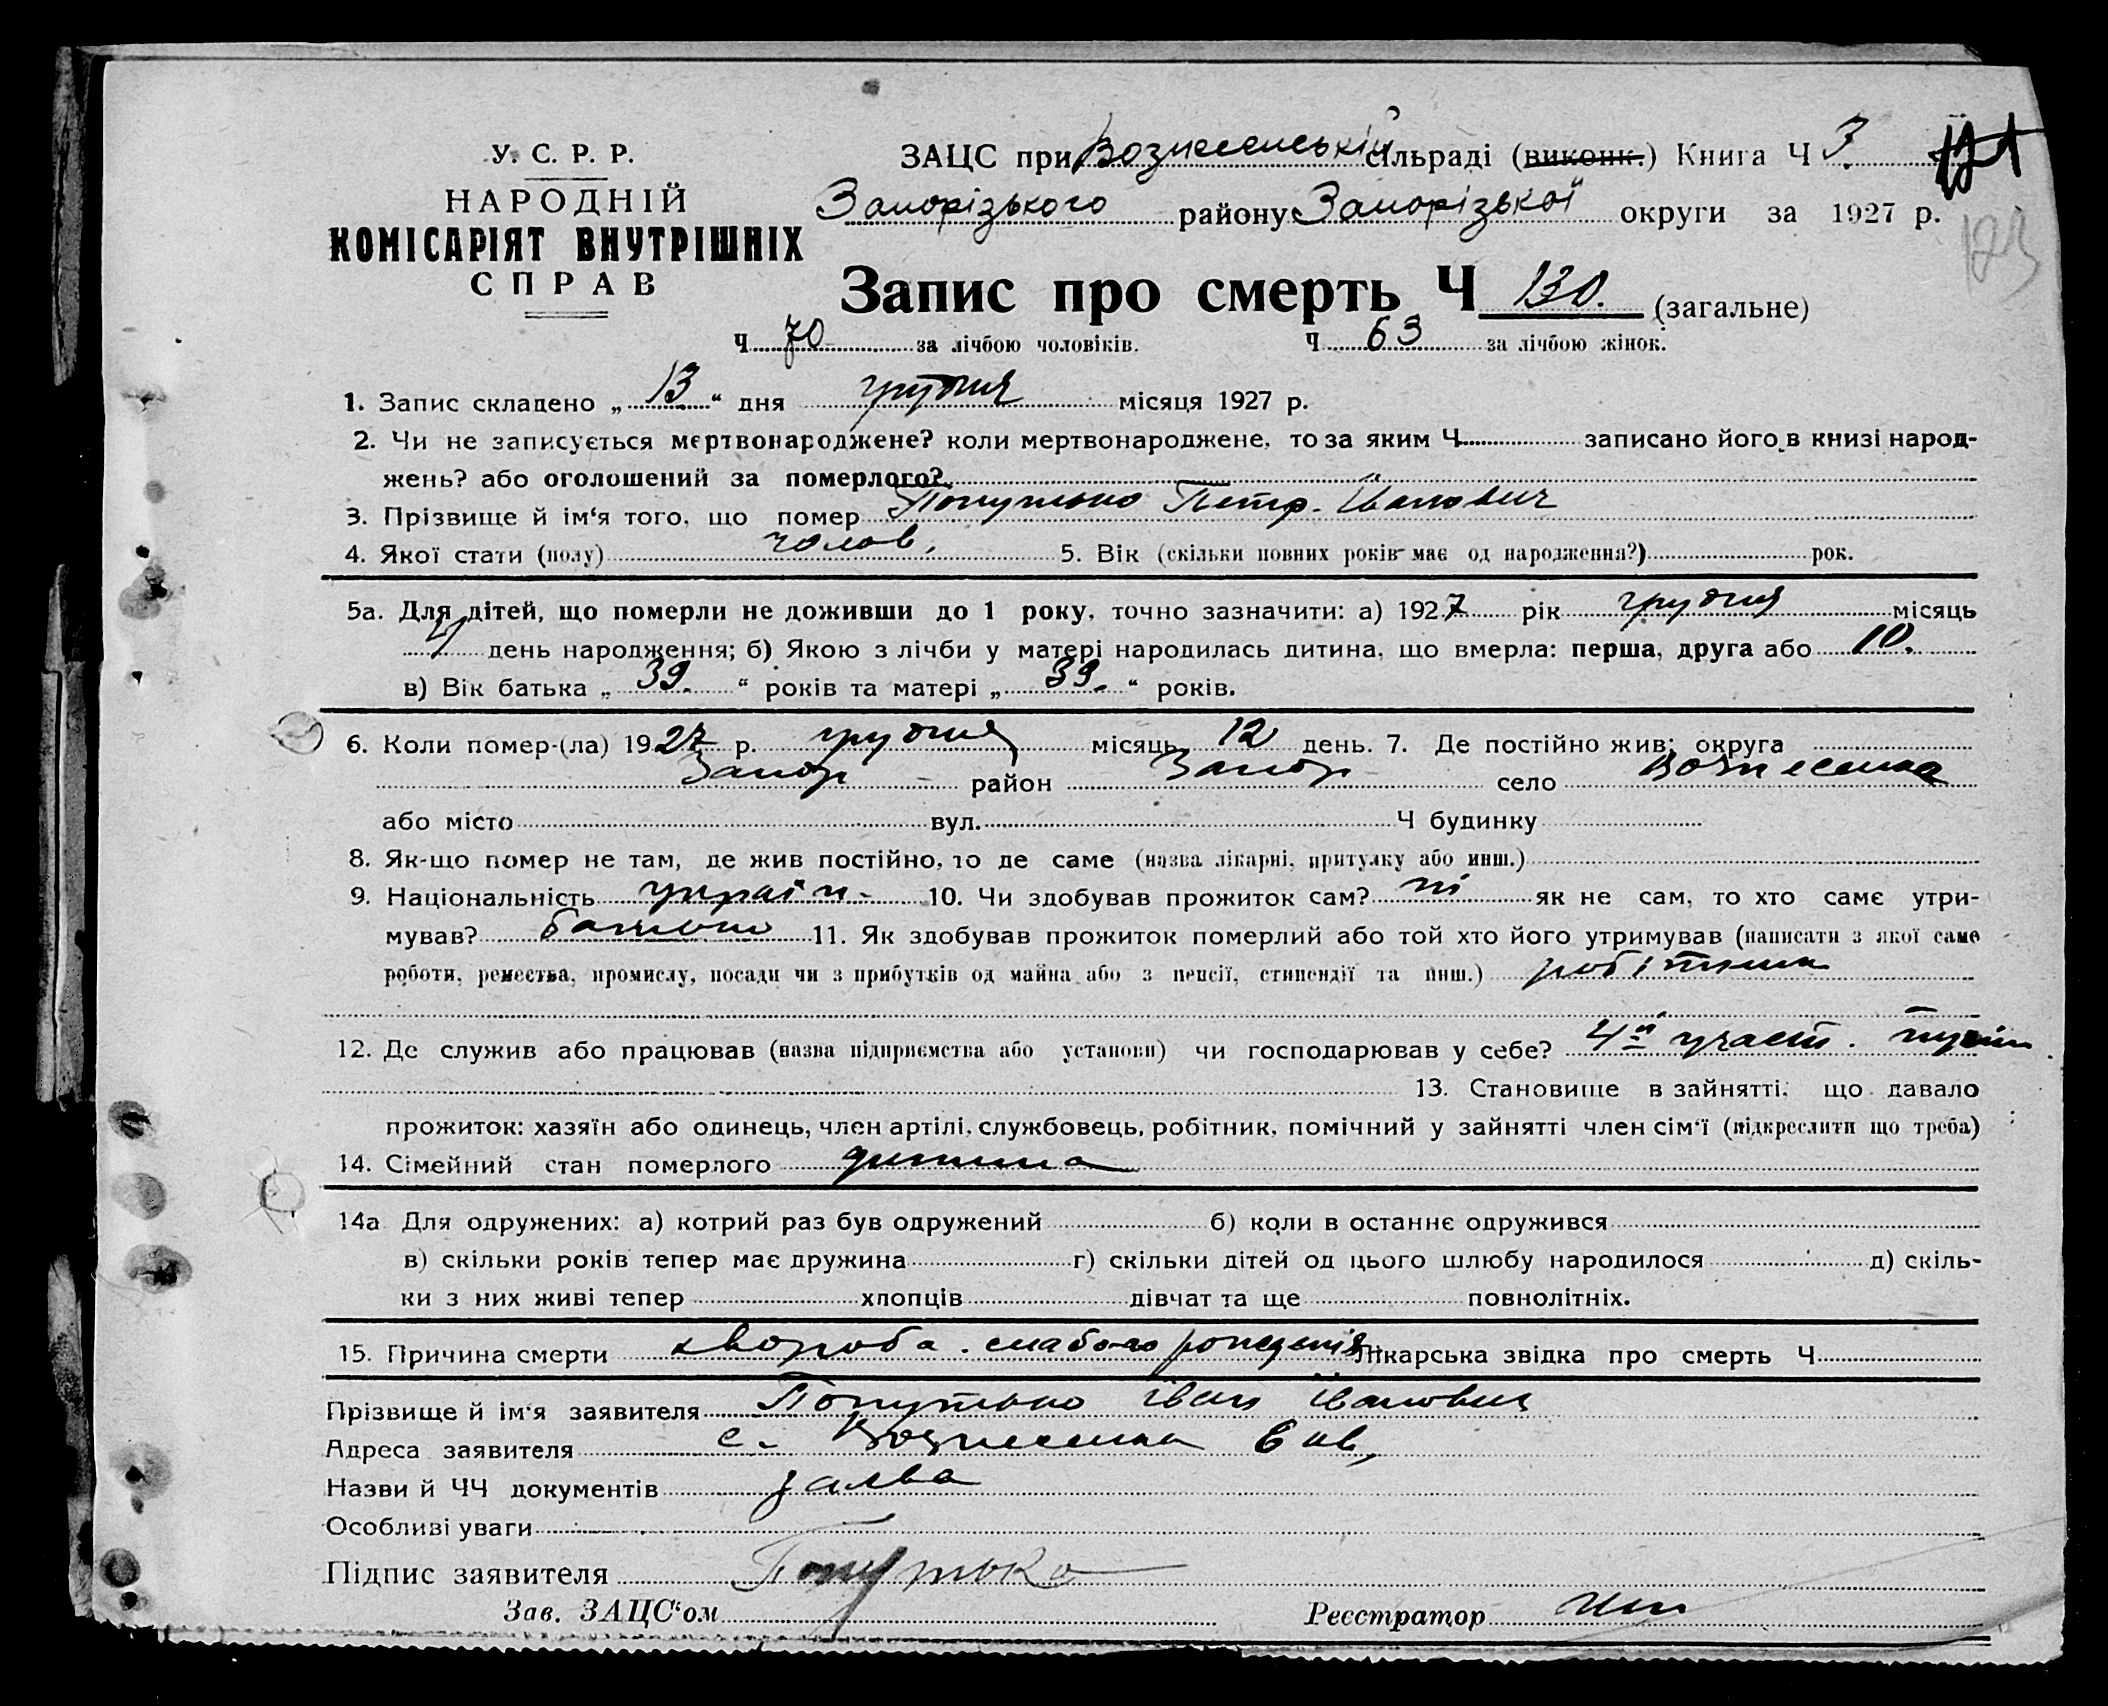 У. С. Р. Р.
НАРОДНІЙ
КОМІСАРІЯТ ВНУТРІШНІХ
СПРАВ
ЗАЦС при Вознесенській сільраді (виконк.) Книга Ч 3
Запорізького району Запорізької округи за 1927 р.
123
Запис про смерть Ч 130. (загальне)
Ч 70 за лічбою чоловіків. Ч 63 за лічбою жінок.
1. Запис складено „13“ дня грудня місяця 1927 р.
2. Чи не записується мертвонароджене? коли мертвонароджене, то за яким Ч записано його в книзі народ-
жень? або оголошений за померлого?
3. Прізвище й ім‘я того, що помер Попутько Петр. Іванович
4. Якої стати (полу) чолов. 5. Вік (скільки повних років має од народження?) рок.
5а. Для дітей, що померли не доживши до 1 року, точно зазначити: а) 1927 рік грудня місяць
4 день народження; б) Якою з лічби у матері народилась дитина, що вмерла: перша, друга або 10.
в) Вік батька „39.“ років та матері „39.“ років.
6. Коли помер-(ла) 1927 р. грудня місяць 12 день. 7. Де постійно жив: округа
Запор район Запор село Вознесенка
або місто вул. Ч будинку
8. Як-що помер не там, де жив постійно, то де саме (назва лікарні, притулку або инш.)
9. Національність україн. 10. Чи здобував прожиток сам? ні як не сам, то хто саме утри-
мував? батько 11. Як здобував прожиток померлий або той хто його утримував (написати з якої саме
роботи, ремества, промислу, посади чи з прибутків од майна або з пенсії, стипендії та инш.) робітник
12. Де служив або працював (назва підприємства або установи) чи господарював у себе? 4й участ.
13. Становище в зайнятті, що давало
прожиток: хазяїн або одинець, член артілі, службовець, робітник, помічний у зайнятті член сім‘ї (підкреслити що треба)
14. Сімейний стан померлого дитина
14а Для одружених: а) котрий раз був одружений б) коли в останнє одружився
в) скільки років тепер має дружина г) скільки дітей од цього шлюбу народилося д) скіль-
ки з них живі тепер хлопців дівчат та ще повнолітніх.
15. Причина смерти хвороба. слабого рождения Лікарська звідка про смерть Ч
Прізвище й ім‘я заявителя Попутько Іван Іванович
Адреса заявителя с. Вознесенка 6 кв,
Назви й ЧЧ документів заява
Особливі уваги
Підпис заявителя Попутько
Зав. ЗАЦС‘ом Реєстратор